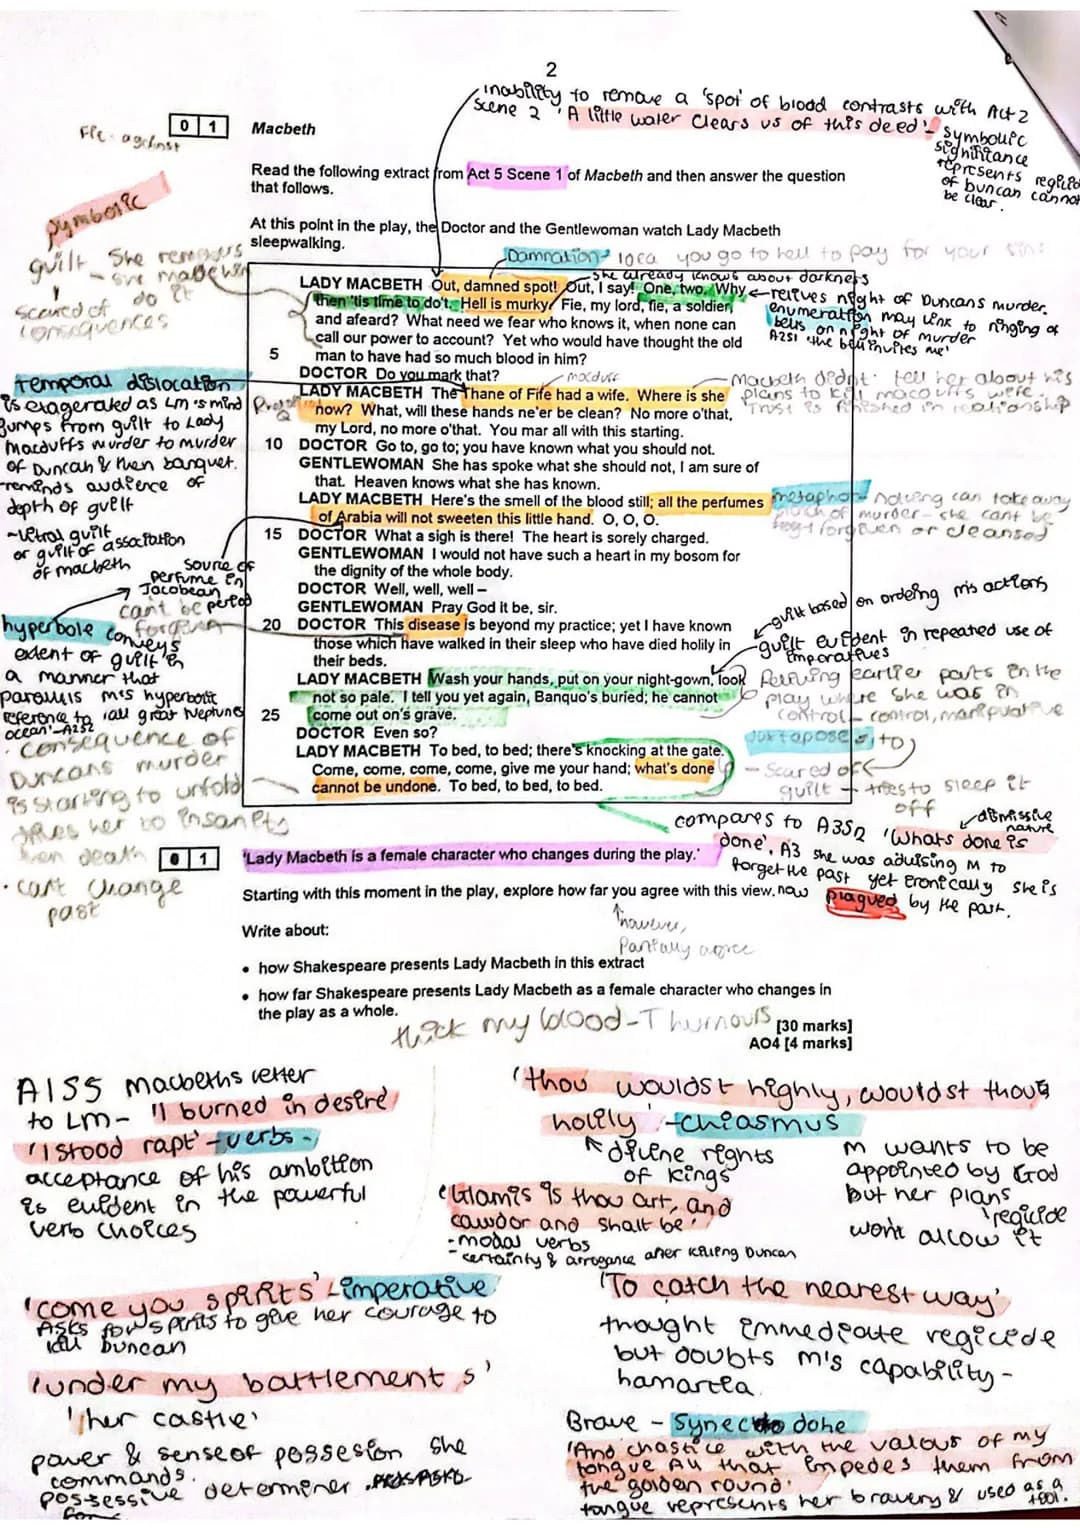 2
inability to remove a 'spot' of blood contrasts with Act 2
scene 2 'A little water clears us of this deed' - symbolic
significance
represents regicide
of Duncan cannot
be clear.
Fie - against
0 1
Macbeth
Read the following extract from Act 5 Scene 1 of Macbeth and then answer the question
that follows.
At this point in the play, the Doctor and the Gentlewoman watch Lady Macbeth
sleepwalking.
symbolic
guilt She remorgs
- sre made him
do it
scared of
consequences
Damnation - idea you go to hell to pay for your sins
- she already knows about darkness
LADY MACBETH Out, damned spot! Out, I say! One, two. Why
then 'tis time to do't. Hell is murky. Fie, my lord, fie, a soldier,
and afeard? What need we fear who knows it, when none can
call our power to account? Yet who would have thought the old
5 man to have had so much blood in him?
DOCTOR Do you mark that?
LADY MACBETH The Thane of Fife had a wife. Where is she
now? What, will these hands ne'er be clean? No more o'that,
my Lord, no more o'that. You mar all with this starting.
10 DOCTOR Go to, go to; you have known what you should not.
GENTLEWOMAN She has spoke what she should not, I am sure of
that. Heaven knows what she has known.
LADY MACBETH Here's the smell of the blood still; all the perfumes
of Arabia will not sweeten this little hand. O, O, O.
15 DOCTOR What a sigh is there! The heart is sorely charged.
GENTLEWOMAN I would not have such a heart in my bosom for
the dignity of the whole body.
DOCTOR Well, well, well –
GENTLEWOMAN Pray God it be, sir.
20 DOCTOR This disease is beyond my practice; yet I have known
those which have walked in their sleep who have died holily in
their beds.
LADY MACBETH Wash your hands, put on your night-gown, look
not so pale. I tell you yet again, Banquo's buried; he cannot
25 come out on's grave.
DOCTOR Even so?
LADY MACBETH To bed, to bed; there's knocking at the gate.
Come, come, come, come, give me your hand; what's done
cannot be undone. To bed, to bed, to bed.
relives night of Duncans murder.
enumeration may link to ringing of
bells on night of murder
A2S1 'the bell invites me'
macduff
Macbeth didnt tell her about his
plans to kill macduffs wife.
Trust is finished in relationship
temporal dislocation
is exagerated as LM's mind
jumps from guilt to Lady
Macduffs murder to murder
of Duncan & then banquet.
reminds audience of
depth of guilt
or guilt of association
of macbeth
metaphor - nothing can take away
of murder - she cant be
forgiven or cleansed
source of
perfume in
Jacobean
period
cant be
forgiven
hyperbole conveys
extent of guilt in
a manner that
parallels m's hyperbolic
reference to 'all great Neptunes
ocean' - A2S2
guilt based on ordering his actions
guilt evident in repeated use of
imperatives
Reliving earlier parts in the
play where she was in
control - control, manipulative
juxtaposes to
- Scared of
guilt - tries to sleep it
off
. consequence of
Duncans murder
is starting to unfold
drives her to insanity
then death
. cant change
past
compares to A3S2 'Whats done is
done'. A3 she was advising M to
forget the past yet ironically she is
now plagued by the past.
dismissive
nature
0 1
'Lady Macbeth is a female character who changes during the play.'
Starting with this moment in the play, explore how far you agree with this view.
however,
Partially agree
Write about:
• how Shakespeare presents Lady Macbeth in this extract
• how far Shakespeare presents Lady Macbeth as a female character who changes in
the play as a whole.
thick my blood - 
[30 marks]
AO4 [4 marks]
A1S5 Macbeths letter
to LM - 'I burned in desire'
'I stood rapt' - verbs -
acceptance of his ambition
is evident in the powerful
verb choices
'thou wouldst highly, wouldst thou
holily' - chiasmus
divine rights
of kings
M wants to be
appointed by God
but her plans
'regicide
won't allow it
'Glamis is thou art, and
cawdor and shalt be'
- modal verbs
- certainty & arrogance after killing Duncan
'come you spirits' - imperative
Asks for spirits to give her courage to
kill Duncan
'To catch the nearest way'
thought immediate regicide
but doubts m's capability -
hamartea
'under my battlements'
'her castle'
power & sense of possesion she
commands.
possessive determiner
Brave - Synecdohe
'And chastice with the valour of my
tongue All that impedes them from
the golden round'
tongue represents her bravery & used as a
tool.